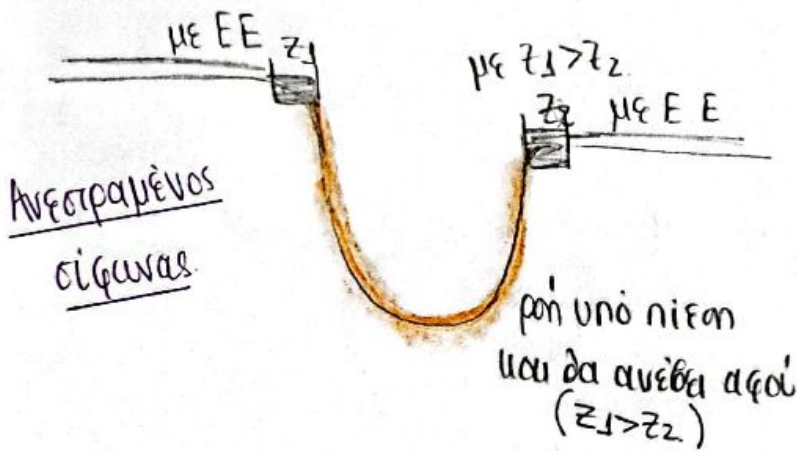 με ΕΕ z1
με z1>z2
z2 με Ε Ε
Ανεστραμένος
σίφωνας.
ροή υπό πίεση
και θα ανέβει αφού
(z1>z2)